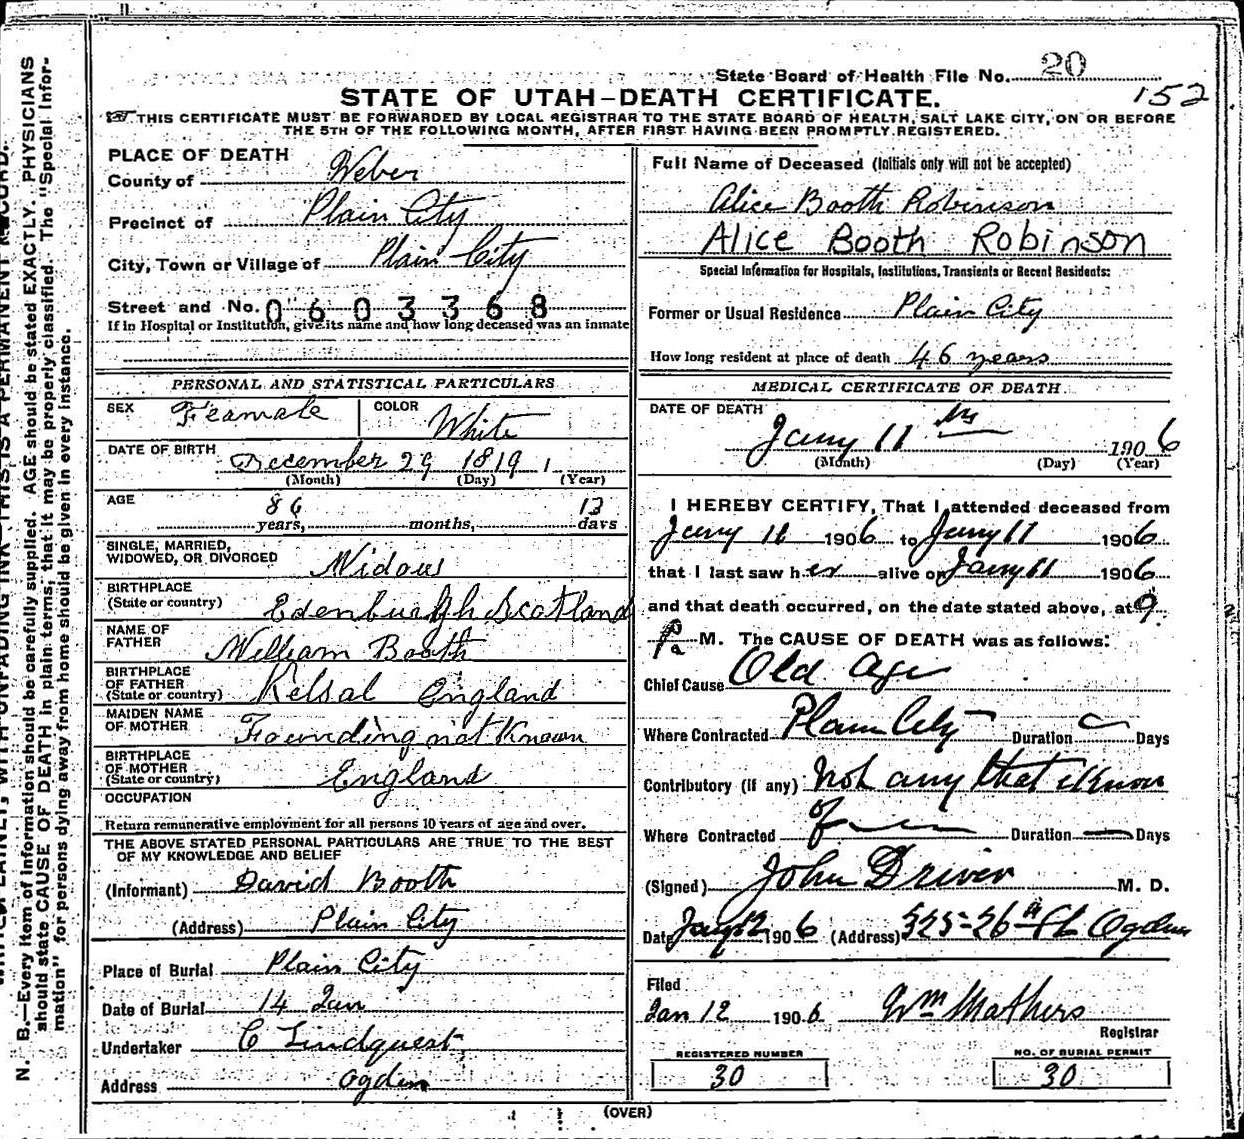 State Board of Health File No. 20
152
STATE OF UTAH—DEATH CERTIFICATE.
THIS CERTIFICATE MUST BE FORWARDED BY LOCAL REGISTRAR TO THE STATE BOARD OF HEALTH, SALT LAKE CITY, ON OR BEFORE
THE 5TH OF THE FOLLOWING MONTH, AFTER FIRST HAVING BEEN PROMPTLY REGISTERED.
PLACE OF DEATH
County of Weber
Precinct of Plain City
City, Town or Village of Plain City
Street and No. 0603368
If in Hospital or Institution, give its name and how long deceased was an inmate
PERSONAL AND STATISTICAL PARTICULARS
SEX Feamale COLOR White
DATE OF BIRTH December 29 1819
(Month) (Day) (Year)
AGE 86 years, months, 13 days
SINGLE, MARRIED,
WIDOWED, OR DIVORCED Widow
BIRTHPLACE
(State or country) Edenburgh Scotland
NAME OF
FATHER William Booth
BIRTHPLACE
OF FATHER
(State or country) Kelsal England
MAIDEN NAME
OF MOTHER Founding not Known
BIRTHPLACE
OF MOTHER
(State or country) England
OCCUPATION
Return remunerative employment for all persons 10 years of age and over.
THE ABOVE STATED PERSONAL PARTICULARS ARE TRUE TO THE BEST
OF MY KNOWLEDGE AND BELIEF
(Informant) David Booth
(Address) Plain City
Place of Burial Plain City
Date of Burial 14 Jan
Undertaker C Lindquest
Address Ogden
Full Name of Deceased (Initials only will not be accepted)
Alice Booth Robinson
Alice Booth Robinson
Special Information for Hospitals, Institutions, Transients or Recent Residents:
Former or Usual Residence Plain City
How long resident at place of death 46 years
MEDICAL CERTIFICATE OF DEATH
DATE OF DEATH
Jany 11 1906
(Month) (Day) (Year)
I HEREBY CERTIFY, That I attended deceased from
Jany 11 1906 to Jany 11 1906
that I last saw her alive on Jany 11 1906
and that death occurred, on the date stated above, at 9
P. M. The CAUSE OF DEATH was as follows:
Chief Cause Old Age
Where Contracted Plain City Duration Days
Contributory (if any) Not any that i Know
of
Where Contracted Duration Days
(Signed) John Driver M. D.
Date Jany 12 1906 (Address) 525-26th St Ogden
Filed
Jan 12 1906 Wm Mathers
Registrar
REGISTERED NUMBER
30
NO. OF BURIAL PERMIT
30
(OVER)
N. B.—Every item of information should be carefully supplied. AGE should be stated EXACTLY. PHYSICIANS
should state CAUSE OF DEATH in plain terms, that it may be properly classified. The "Special Infor-
mation" for persons dying away from home should be given in every instance.